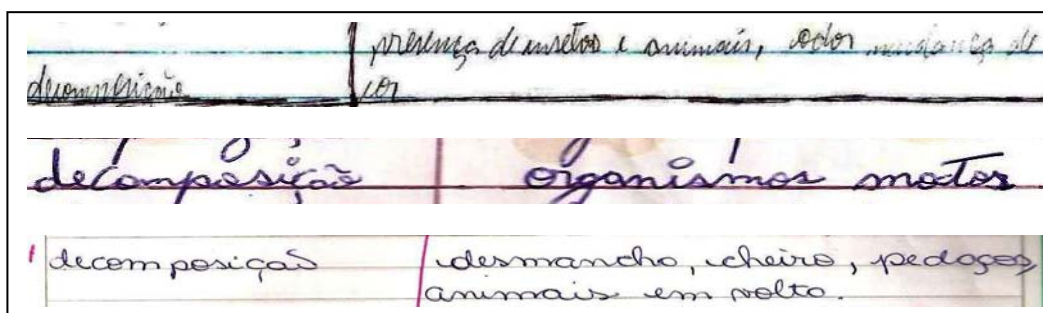 presença de insetos e animais, odor mudança de
decomposição cor
decomposição organismos mortos
decomposição desmancho, cheiro, pedaços,
animais em volta.